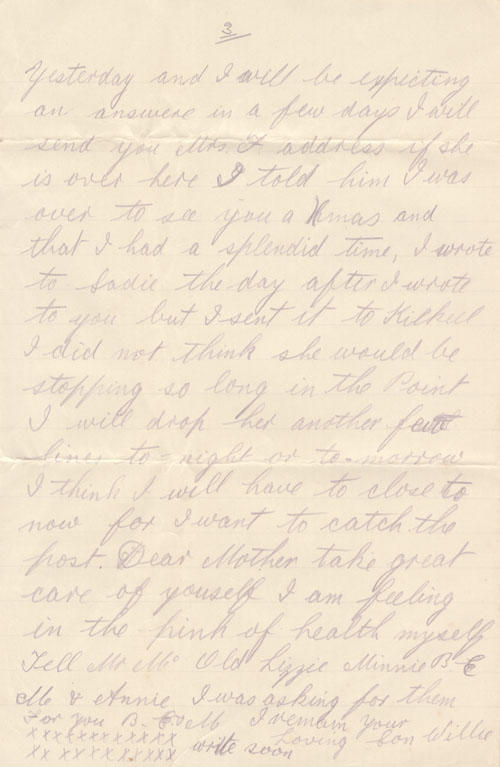 3
Yesterday and I will be expecting
an answere in a few days I will
send you Mrs. F address if she
is over here I told him I was
over to see you a Xmas and
that I had a splendid time, I wrote
to Sadie the day after I wrote
to you but I sent it to Kilkeel
I did not think she would be
stopping so long in the Point
I will drop her another few
lines to-night or to-morrow
I think I will have to close to
now for I want to catch the
post. Dear Mother take great
care of youself I am feeling
in the pink of health myself
Tell Mr Mc Old Lizzie Minnie B-E
Mc & Annie I was asking for them
For you B-E Mc I remain your
xxxxxxxxxxx Loving Son Willie
xx xx xx xxxxx write soon